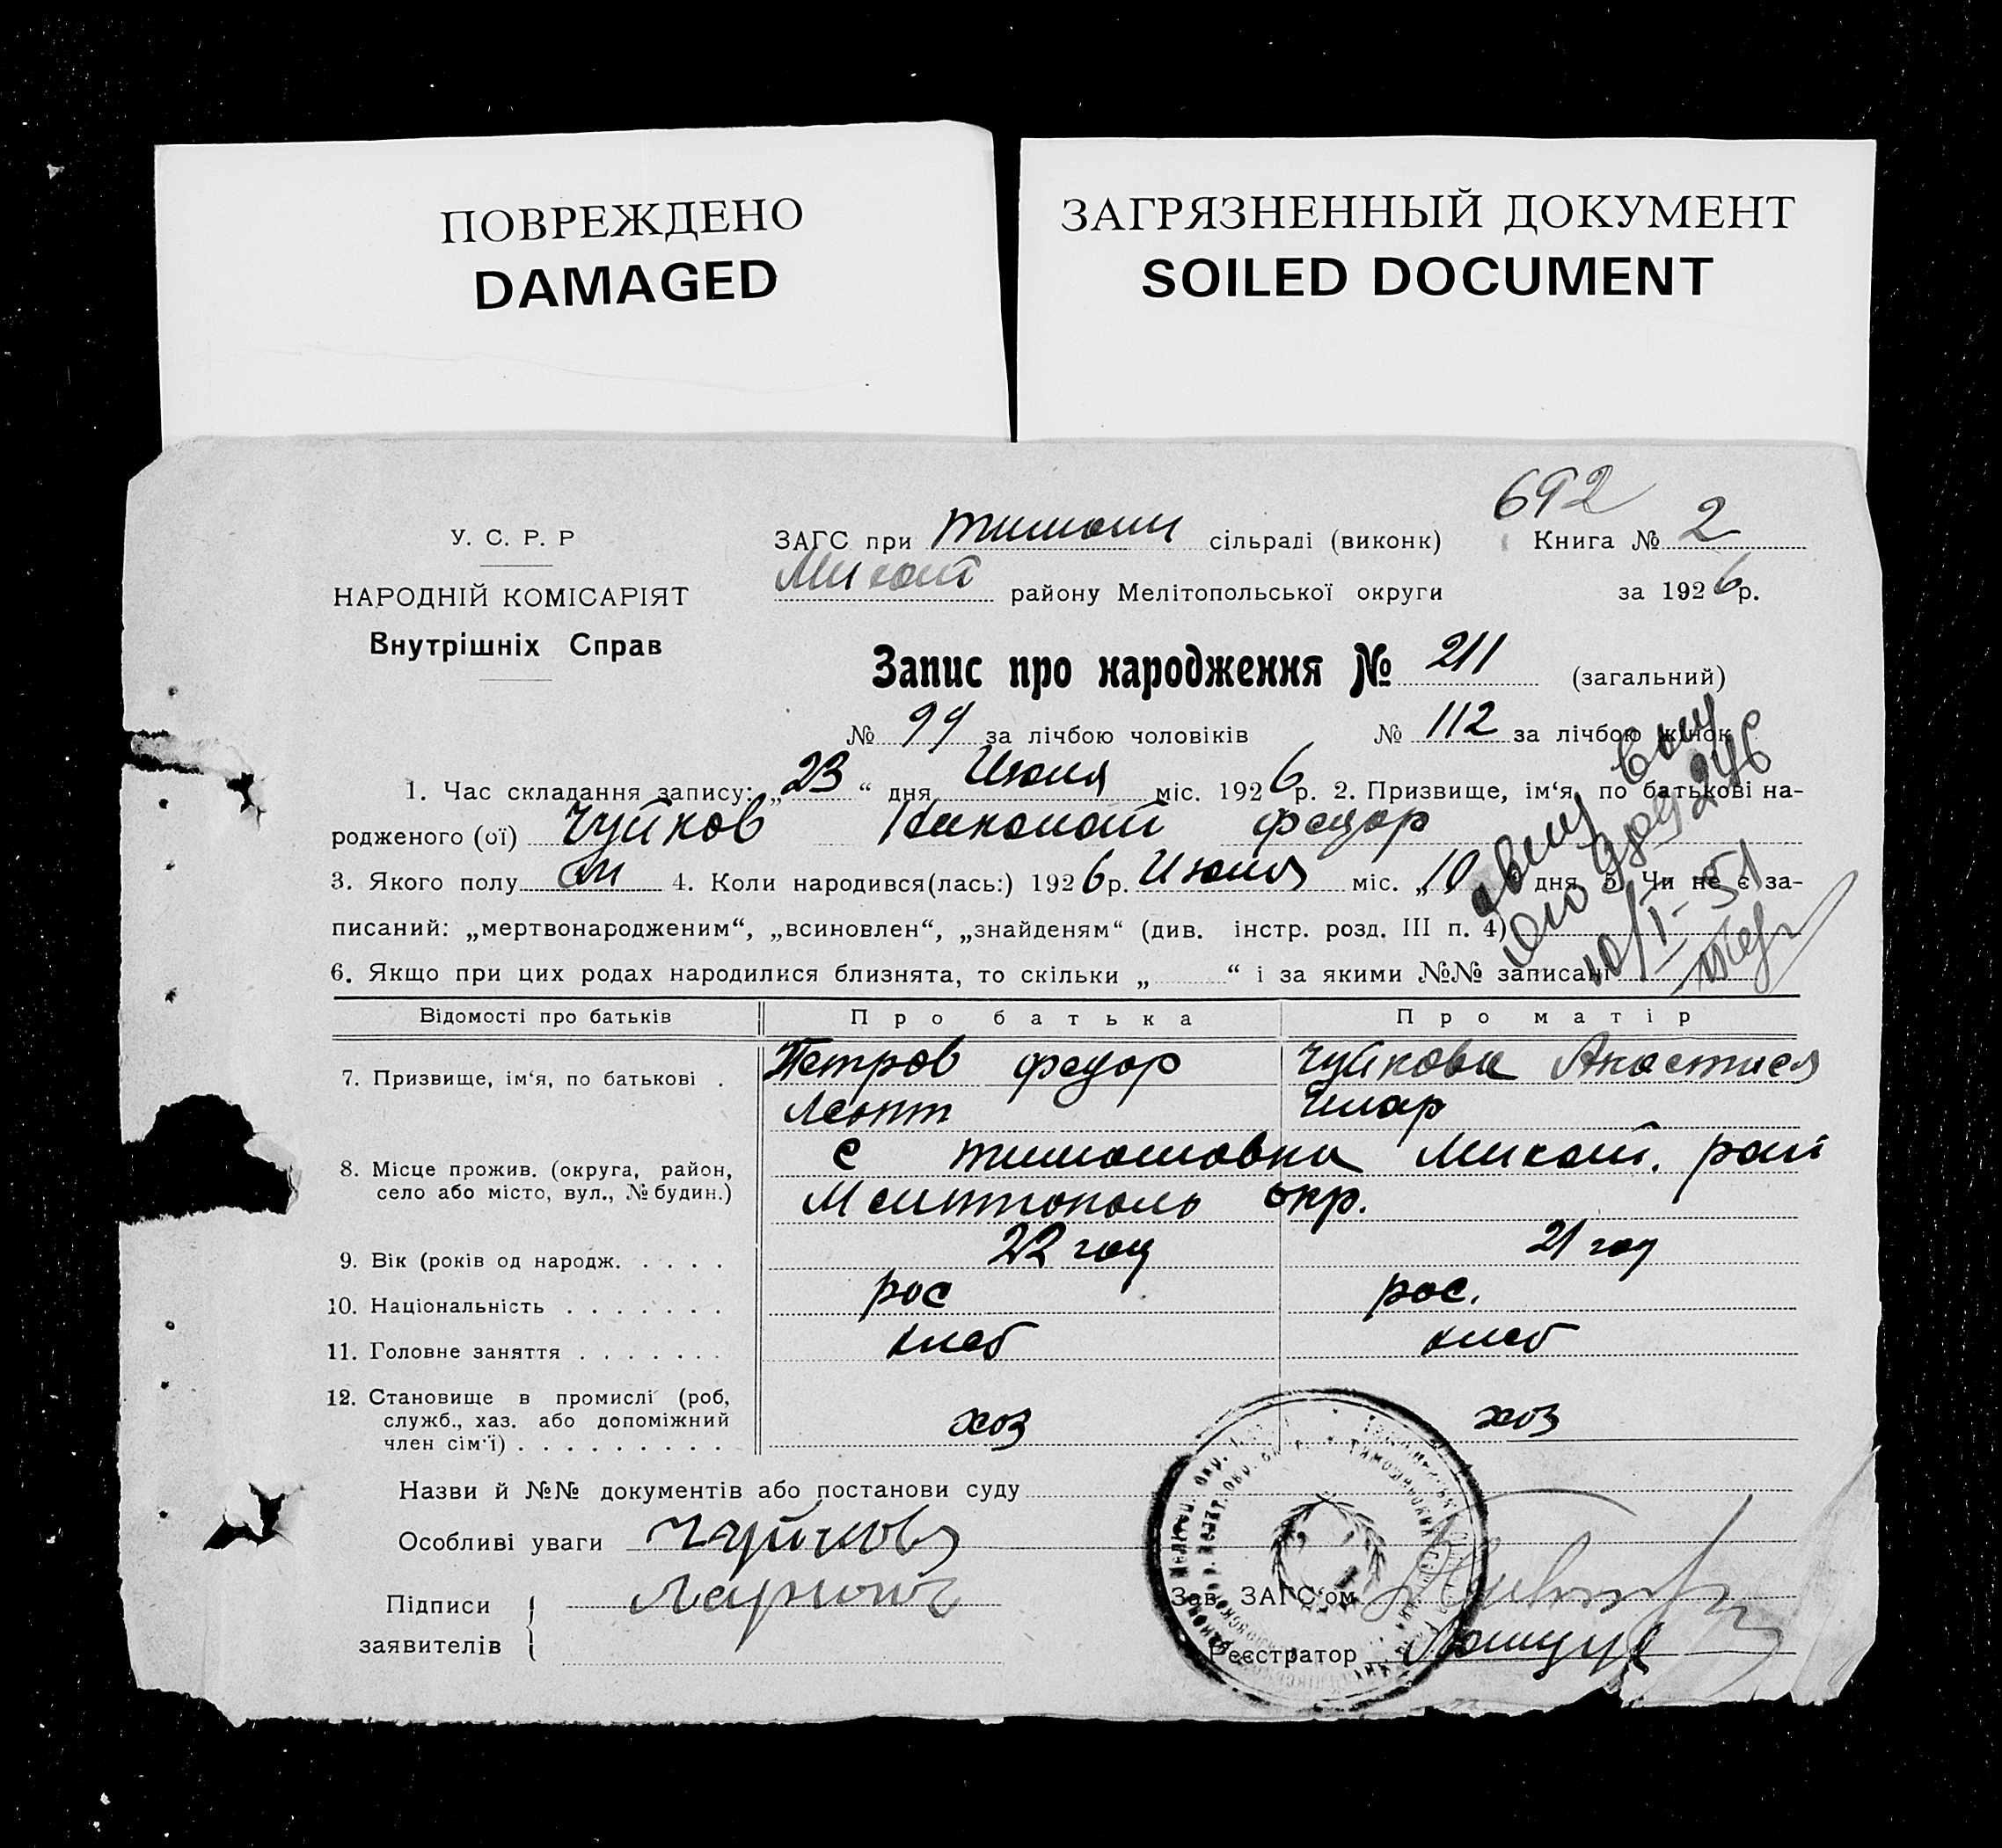 ПОВРЕЖДЕНО
DAMAGED
ЗАГРЯЗНЕННЫЙ ДОКУМЕНТ
SOILED DOCUMENT
692
У. С. Р. Р
НАРОДНІЙ КОМІСАРІЯТ
Внутрішніх Справ
ЗАГС при Тимош сільраді (виконк) Книга № 2
Михай району Мелітопольської округи за 1926р.
Запис про народження № 211 (загальний)
№ 99 за лічбою чоловіків № 112 за лічбою жінок
1. Час складання запису: „23“ дня Июля міс. 1926р. 2. Призвище, ім‘я, по батькові на-
родженого (ої) Чуйков Николай Федор
3. Якого полу 4. Коли народився(лась:) 1926р. Июля міс. „10 дня 5. Чи не є за-
писаний: „мертвонародженим“, „всиновлен“, „знайденям“ (див. інстр. розд. III п. 4)
6. Якщо при цих родах народилися близнята, то скільки „ “ і за якими №№ записані
10/I-51
Відомості про батьків Про батька Про матір
7. Призвище, ім‘я, по батькові . Петров Федор Чуйкова Анастасия
Леонт Илар
8. Місце прожив. (округа, район, с Тимошовка Михай. рай
село або місто, вул., № будин.) Мелитополь окр.
9. Вік (років од народж. . . . . 22 год 21 год
10. Національність . . . . . . . рос рос.
11. Головне заняття . . . . . . . хлеб хлеб
12. Становище в промислі (роб,
служб., хаз. або допоміжний хоз хоз
член сім‘ї) . . . . . . . . .
Назви й №№ документів або постанови суду
Особливі уваги Чуйков
Підписи
заявителів
Зав. ЗАГС‘ом
Реєстратор